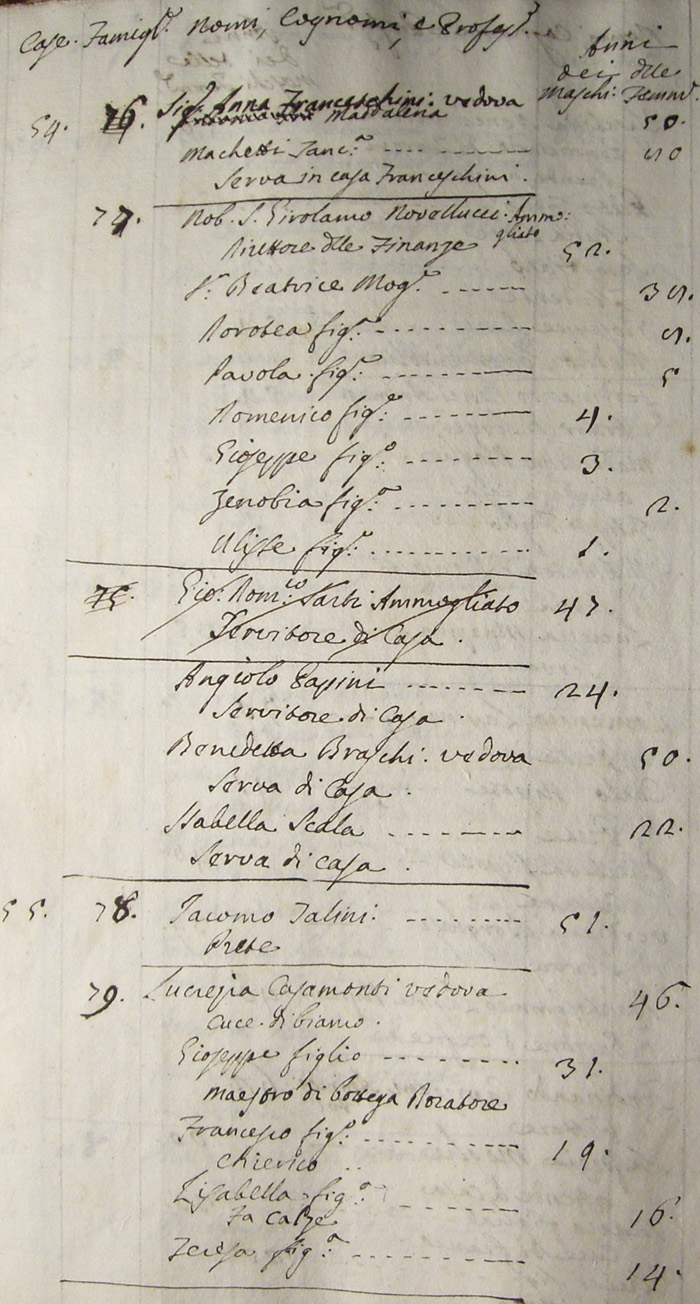 Case. Famigl.e Nomi, Cognomi, e Profess.i
Anni
dei delle
Maschi: Femm.e
54. 76. Sig.a Anna Franceschini: vedova
Maddalena 50.
Machetti 50
Serva in casa Franceschini.
77. Nob. S. Girolamo Novellucci. Ammo:
gliato
Direttore dlle Finanze 52.
S.a Beatrice Mog.e 35.
Dorotea fig.a 5.
Paola fig.a 5
Domenico fig.o 4.
Gioseppe fig.o 3.
Zenobia fig.a 2.
Ulisse fig.o 1.
Gio: Dom.co Sarti Ammogliato 47.
Servitore di Casa.
Angiolo Papini 24.
Servitore di Casa.
Benedetta Braschi. vedova 50.
Serva di Casa.
Isabella Scala 22.
Serva di casa.
55. 78. Jacomo Talini. 51.
Prete
79. Lucrezia Casamonti vedova 46.
Cuce di biamo.
Gioseppe figlio 31.
maestro di bottega Doratore
Francesco fig.o 19.
Chierico
Lisabella fig.a
Fa Calze 16.
Teresa fig.a 14.